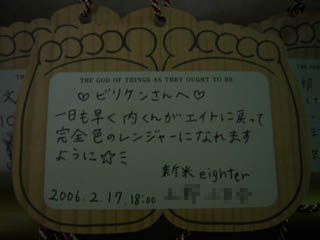 THE GOD OF THINGS AS THEY OUGHT TO BE
♡ビリケンさんへ♡
一日も早く内くんがエイトに戻って
完全色のレンジャーになれます
ように☆ミ
新米 eighter
2006.2.17. 18:00
文